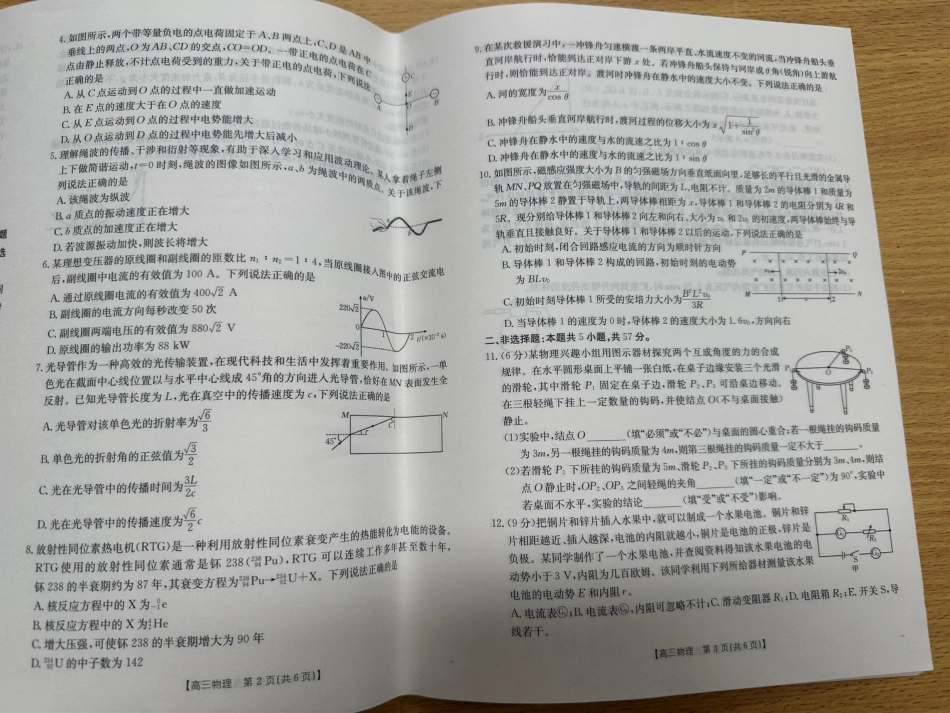 4. 如图所示,两个带等量负电的点电荷固定于 A、B 两点上,C、D 是 AB 中
垂线上的两点,O 为 AB、CD 的交点,CO=OD。一带正电的点电荷在 C
点由静止释放,不计点电荷受到的重力,关于带正电的点电荷,下列说法
正确的是
A. 从 C 点运动到 O 点的过程中一直做加速运动
B. 在 E 点的速度大于在 O 点的速度
C. 从 E 点运动到 O 点过程中电势能增大
D. 从 O 点运动到 D 点的过程中电势能先增大后减小
C
E
A
O
B
D
5. 理解绳波的传播、干涉和衍射等现象,有助于深入学习和应用波动理论。某人拿着绳子左侧
上下做简谐运动,t=0 时刻,绳波的图像如图所示,a、b 为绳波中的两质点。关于该绳波,下
列说法正确的是
A. 该绳波为纵波
B. a 质点的振动速度正在增大
C. b 质点的加速度正在增大
D. 若波源振动加快,则波长将增大
6. 某理想变压器的原线圈和副线圈的匝数比 n₁∶n₂=1∶4,当原线圈接入图中的正弦交流电
后,副线圈中电流的有效值为 100 A。下列说法正确的是
A. 通过原线圈电流的有效值为 400√2 A
B. 副线圈的电流方向每秒改变 50 次
C. 副线圈两端电压的有效值为 880√2 V
D. 原线圈的输出功率为 88 kW
u/V
220√2
0
1
2
t/(×10⁻² s)
-220√2
7. 光导管作为一种高效的光传输装置,在现代科技和生活中发挥着重要作用。如图所示,一单
色光在截面中心线位置以与水平中心线成 45°角的方向进入光导管,恰好在 MN 表面发生全
反射。已知光导管长度为 L,光在真空中的传播速度为 c,下列说法正确的是
A. 光导管对该单色光的折射率为√6/3
B. 单色光的折射角的正弦值为√3/2
C. 光在光导管中的传播时间为3L/2c
D. 光在光导管中的传播速度为√6/2 c
M
N
45°
8. 放射性同位素热电机(RTG)是一种利用放射性同位素衰变产生的热能转化为电能的设备。
RTG 使用的放射性同位素通常是钚 238(²³⁸₉₄Pu),RTG 可以连续工作多年甚至数十年,
钚 238 的半衰期约为 87 年,其衰变方程为²³⁸₉₄Pu→²³⁴₉₂U+X。下列说法正确的是
A. 核反应方程中的 X 为₋₁⁰e
B. 核反应方程中的 X 为⁴₂He
C. 增大压强,可使钚 238 的半衰期增大为 90 年
D. ²³⁴₉₂U 的中子数为 142
【高三物理 第 2 页(共 6 页)】
9. 在某次救援演习中,一冲锋舟匀速横渡一条两岸平直、水流速度不变的河流,当冲锋舟船头垂
直河岸航行时,恰能到达正对岸下游 x 处。若冲锋舟船头保持与河岸成 θ 角(锐角)向上游航
行时,则恰能到达正对岸。渡河时冲锋舟在静水中的速度大小不变。下列说法正确的是
A. 河的宽度为x/cos θ
B. 冲锋舟船头垂直河岸航行时,渡过程的位移大小为 x√(1+1/sin²θ)
C. 冲锋舟在静水中的速度与水的流速之比为 1∶cos θ
D. 冲锋舟在静水中的速度与水的流速之比为 1∶sin θ
10. 如图所示,磁感应强度大小为 B 的匀强磁场方向垂直纸面向里,足够长的平行且光滑的金属导
轨 MN、PQ 放置在匀强磁场中,导轨的间距为 L,电阻不计。质量为 2m 的导体棒 1 和质量为
5m 的导体棒 2 静置于导轨上,两导体棒相距为 x,导体棒 1 和导体棒 2 的电阻分别为 4R 和
5R。现分别给导体棒 1 和导体棒 2 向左和向右、大小为 v₀ 和 2v₀ 的初速度,两导体棒始终与导
轨垂直且接触良好。关于导体棒 1 和导体棒 2 以后的运动,下列说法正确的是
A. 初始时刻,闭合回路感应电流的方向为顺时针方向
B. 导体棒 1 和导体棒 2 构成的回路,初始时刻的电动势
为 BLv₀
C. 初始时刻导体棒 1 所受的安培力大小为B²L²v₀/3R
D. 当导体棒 1 的速度为 0 时,导体棒 2 的速度大小为 1.6v₀,方向向右
P
Q
v₀
2v₀
M
1
2
N
二、非选择题:本题共 5 小题,共 57 分。
11. (6 分)某物理兴趣小组用图示器材探究两个互成角度的力的合成
规律。在水平圆形桌面上平铺一张白纸,在桌子边缘安装三个光滑
的滑轮,其中滑轮 P₁ 固定在桌子边,滑轮 P₂、P₃ 可沿桌边移动。
在三根轻绳下挂上一定数量的钩码,并使结点 O(不与桌面接触)
静止。
(1)实验中,结点 O ______(填“必须”或“不必”)与桌面的圆心重合;若一根绳挂的钩码质量
为 3m,另一根绳挂的钩码质量为 4m,则第三根绳挂的钩码质量一定不大于______。
(2)若滑轮 P₁ 下所挂的钩码质量为 5m、滑轮 P₂、P₃ 下所挂的钩码质量分别为 3m、4m,则结
点 O 静止时,OP₂、OP₃ 之间轻绳的夹角______(填“一定”或“不一定”)为 90°,实验中
若桌面不水平,实验的结论______(填“受”或“不受”)影响。
12. (9 分)把铜片和锌片插入水果中,就可以制成一个水果电池。铜片和锌
片相距越近、插入越深,电池的内阻就越小,铜片是电池的正极,锌片是
负极。某同学制作了一个水果电池,并查阅资料得知该水果电池的电
动势小于 3 V,内阻为几百欧姆。该同学利用下列所给器材测量该水果
电池的电动势 E 和内阻 r。
R₁
G₁
R₂
G₂
S
甲
A. 电流表G₁;B. 电流表G₂,内阻可忽略不计;C. 滑动变阻器 R₁;D. 电阻箱 R₂;E. 开关 S、导
线若干。
【高三物理 第 3 页(共 6 页)】
题
选